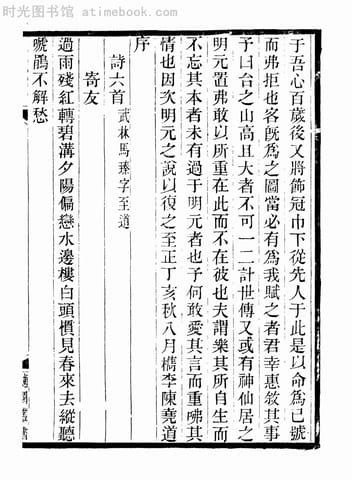 时光图书馆 - atimebook.com
于吾心百歲後又將飾冠巾下從先人于此是以命爲已號
而弗拒也客旣爲之圖當必有爲我賦之者君幸惠敘其事
予曰台之山高且大者不可一二計世傳又或有神仙居之
明元置弗敢以所重在此而不在彼也夫謂樂其所自生而
不忘其本者未有過于明元者也予何敢愛其言而重咈其
情也因次明元之說以復之至正丁亥秋八月檇李陳堯道
序
詩六首 武林馬臻字至道
寄友
過雨殘紅轉碧溝夕陽偏戀水邊樓白頭慣見春來去縱聽
嗁鵑不解愁
適園叢書